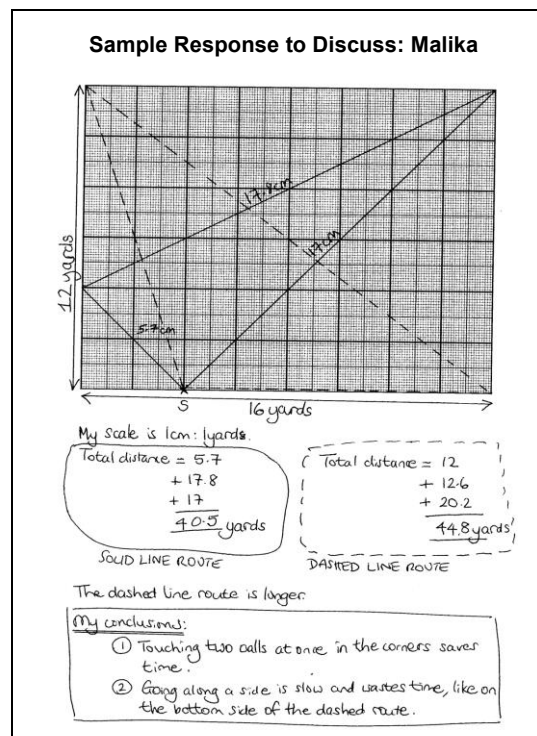 Sample Response to Discuss: Malika
17.8cm
17cm
12 yards
5.7cm
S
16 yards
My scale is 1cm: 1yards.
Total distance = 5.7
+ 17.8
+ 17
40.5 yards
SOLID LINE ROUTE
Total distance = 12
+ 12.6
+ 20.2
44.8 yards
DASHED LINE ROUTE
The dashed line route is longer.
My conclusions:
① Touching two walls at once in the corners saves
time.
② Going along a side is slow and wastes time, like on
the bottom side of the dashed route.